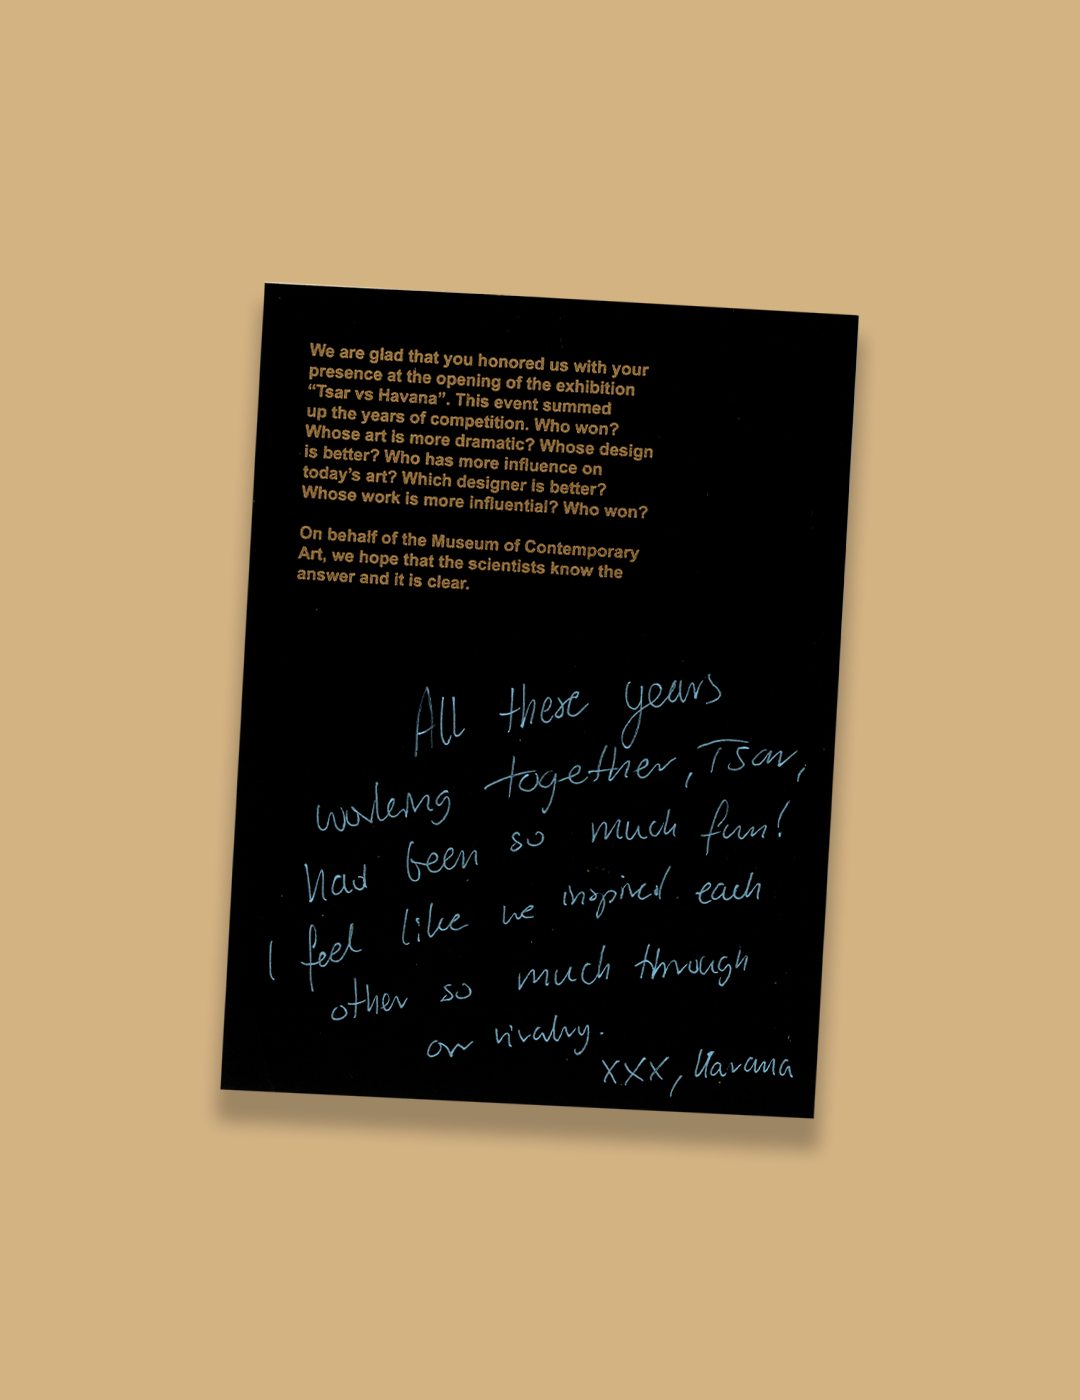 We are glad that you honored us with your
presence at the opening of the exhibition
“Tsar vs Havana”. This event summed
up the years of competition. Who won?
Whose art is more dramatic? Whose design
is better? Who has more influence on
today’s art? Which designer is better?
Whose work is more influential? Who won?
On behalf of the Museum of Contemporary
Art, we hope that the scientists know the
answer and it is clear.
All these years
working together, Tsar,
had been so much fun!
I feel like we inspired each
other so much through
our rivalry.
xxx, Havana